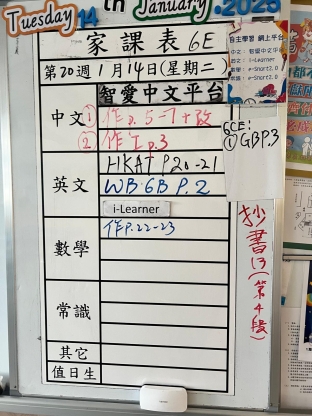 Tuesday 14 th January, 2025
家課表 6E
第20週 1月14日(星期二)
智愛中文平台
中文 ① 作p.5-7+改
② 作工p.3
英文 HKAT P20-21
WB:6B P.2
i-Learner
數學 作P.22-23
常識
其它
值日生
GCE:
① GBP.3
抄書13(第4段)
自主學習 網上平台
中文:智愛中文平台
英文:i-Learner